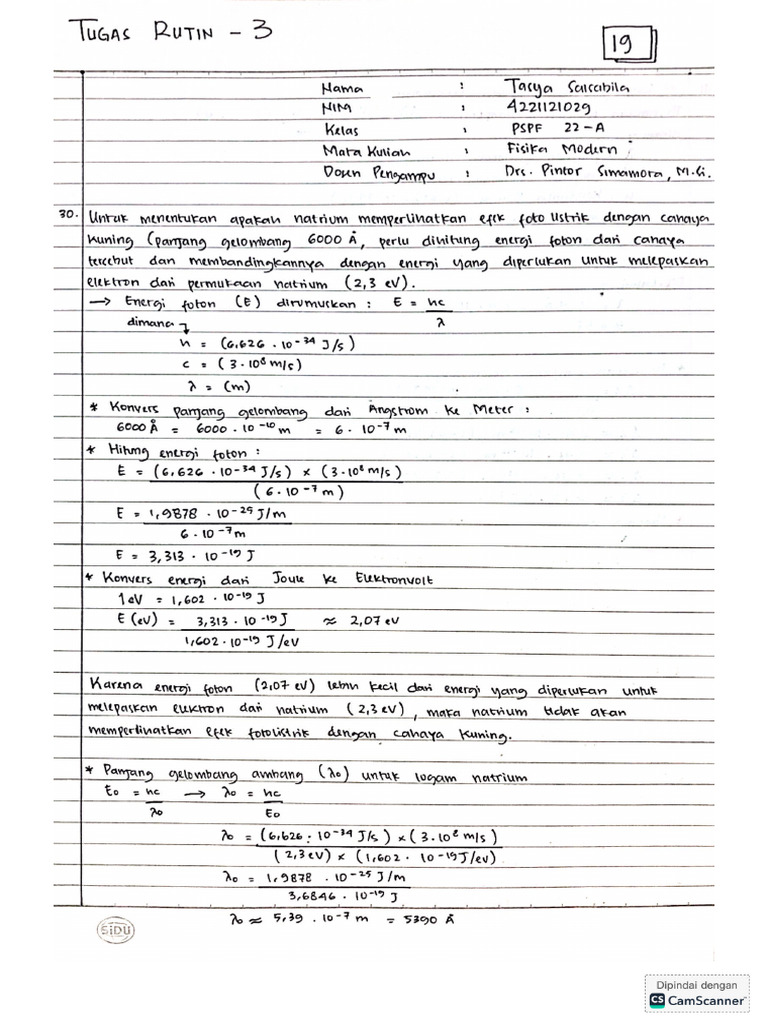 TUGAS RUTIN - 3
19
Nama : Tasya Salsabila
NIM : 4221121029
Kelas : PSPF 22-A
Mata Kuliah : Fisika Modern
Dosen Pengampu : Drs. Pintor Simamora, M.Si.
30. Untuk menentukan apakah natrium memperlihatkan efek foto listrik dengan cahaya
kuning (panjang gelombang 6000 Å, perlu dihitung energi foton dari cahaya
tersebut dan membandingkannya dengan energi yang diperlukan untuk melepaskan
elektron dari permukaan natrium (2,3 eV).
→ Energi foton (E) dirumuskan : E = hc
λ
dimana
h = (6,626 · 10⁻³⁴ J/s)
c = (3 · 10⁸ m/s)
λ = (m)
* Konvers panjang gelombang dari Angstrom ke Meter :
6000 Å = 6000 · 10⁻¹⁰ m = 6 · 10⁻⁷ m
* Hitung energi foton :
E = (6,626 · 10⁻³⁴ J/s) × (3 · 10⁸ m/s)
(6 · 10⁻⁷ m)
E = 1,9878 · 10⁻²⁵ J/m
6 · 10⁻⁷ m
E = 3,313 · 10⁻¹⁹ J
* Konvers energi dari Joule ke Elektronvolt
1 eV = 1,602 · 10⁻¹⁹ J
E (eV) = 3,313 · 10⁻¹⁹ J ≈ 2,07 eV
1,602 · 10⁻¹⁹ J/eV
Karena energi foton (2,07 eV) lebih kecil dari energi yang diperlukan untuk
melepaskan elektron dari natrium (2,3 eV), maka natrium tidak akan
memperlihatkan efek fotolistrik dengan cahaya kuning.
* Panjang gelombang ambang (λ₀) untuk logam natrium
E₀ = hc → λ₀ = hc
λ₀ E₀
λ₀ = (6,626 · 10⁻³⁴ J/s) × (3 · 10⁸ m/s)
(2,3 eV) × (1,602 · 10⁻¹⁹ J/eV)
λ₀ = 1,9878 · 10⁻²⁵ J/m
3,6846 · 10⁻¹⁹ J
λ₀ ≈ 5,39 · 10⁻⁷ m = 5390 Å
SiDU
Dipindai dengan
CS CamScanner